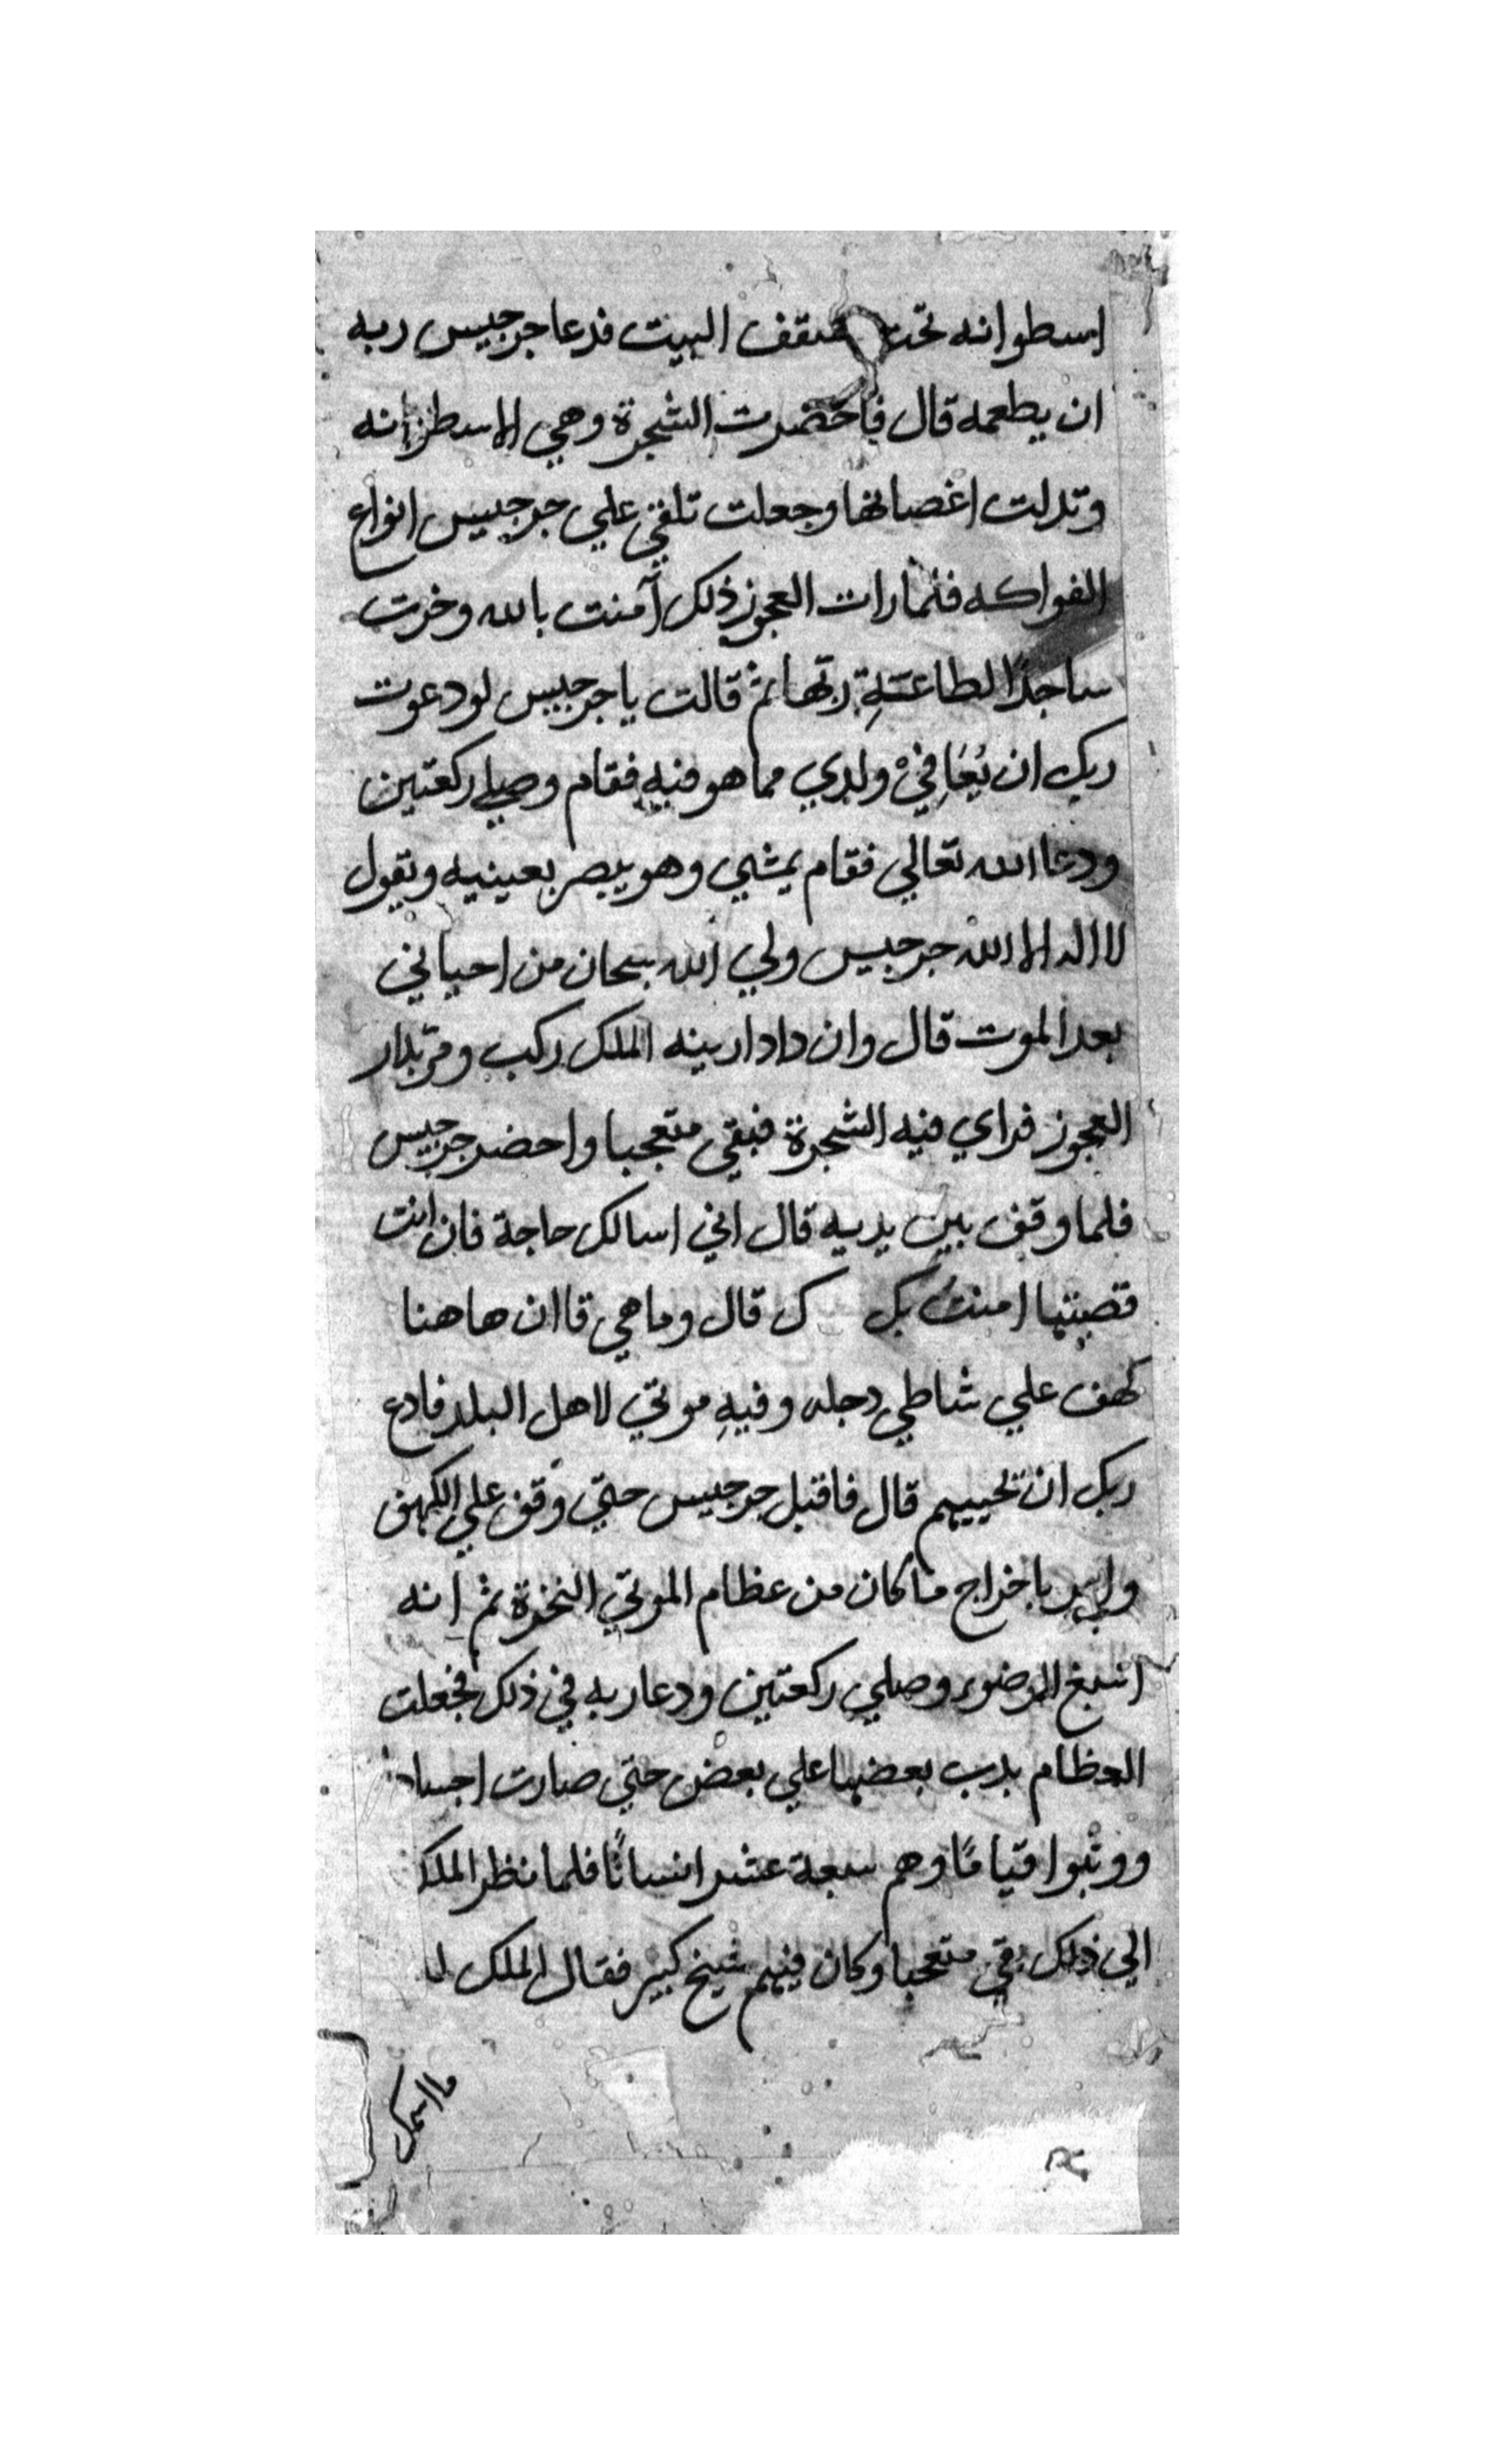 اسطوانه تحت سقف البيت فدعا جرجيس ربه
ان يطعمه قال فاخضرت الشجرة وهي الاسطوانه
وتدلت اغصانها وجعلت تلقي علي جرجيس انواع
الفواكه فلما رات العجوز ذلك آمنت بالله وخرت
ساجدًا لطاعة ربها ثم قالت يا جرجيس لو دعوت
ربك ان يُعَافيْ ولدي مما هو فيه فقام وصلي ركعتين
ودعا الله تعالي فقام يمشي وهو يبصر بعينيه ويقول
لا اله الا الله جرجيس ولي الله سبحان من احياني
بعد الموت قال وان دادارينه الملك ركب ومرّ بدار
العجوز فراي فيه الشجرة فبقي متعجبا واحضر جرجيس
فلما وقف بين يديه قال اني اسالك حاجة فان انت
قضيتها امنتُ بك قال وما هي قا ان هاهنا
كهف علي شاطي دجله وفيهِ موتي لاهل البلد فادع
ربك ان تحييهم قال فاقبل جرجيس حتي وقف علي الكهف
وامر باخراج ما كان من عظام الموتي النخرة ثم انه
اسبغ الوضوء وصلي ركعتين ودعا ربه في ذلك فجعلت
العظام يدب بعضها علي بعض حتي صارت اجساد
ووثبوا قيامًا وهم سبعة عشر انسانًا فلما نظر الملك
الي ذلك بقي متعجبا وكان فيهم شيخ كبير فقال الملك له
ما اسمك